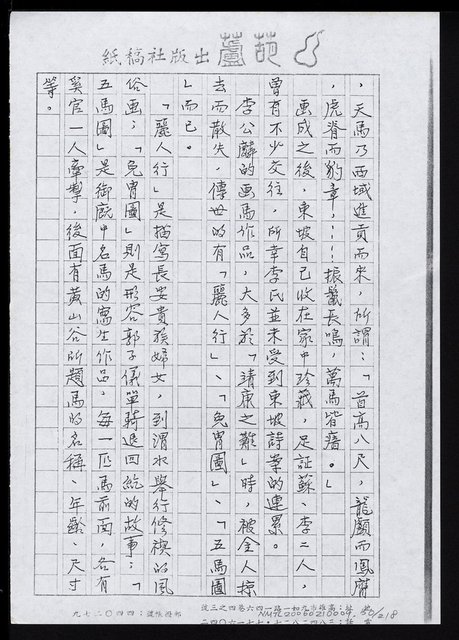 紙稿社版出蘆葫
，天馬乃西域進貢而來，所謂：「首高八尺，龍顱而鳳膺
，虎脊而豹章，……振鬣長鳴，萬馬皆瘖。」
畫成之後，東坡自己收在家中珍藏，足証蘇、李二人，
曾有不少交往，所幸李氏並未受到東坡詩案的連累。
李公麟的画馬作品，大多於「靖康之難」時，被金人掠
去而散失，傳世的有「麗人行」、「免冑圖」、「五馬圖
」而已。
「麗人行」是描寫長安貴族婦女，到渭水舉行修禊的風
俗画；「免冑圖」則是形容郭子儀單騎退回紇的故事；「
五馬圖」是御廄中名馬的寫生作品，每一匹馬前面，各有
奚官一人牽拏，後面有黃山谷所題馬的名稱、年齡、尺寸
等。
號之三四巷六四一路一和九市雄高：址
NM7L20060210009
218
九七二〇〇四四：號帳撥郵